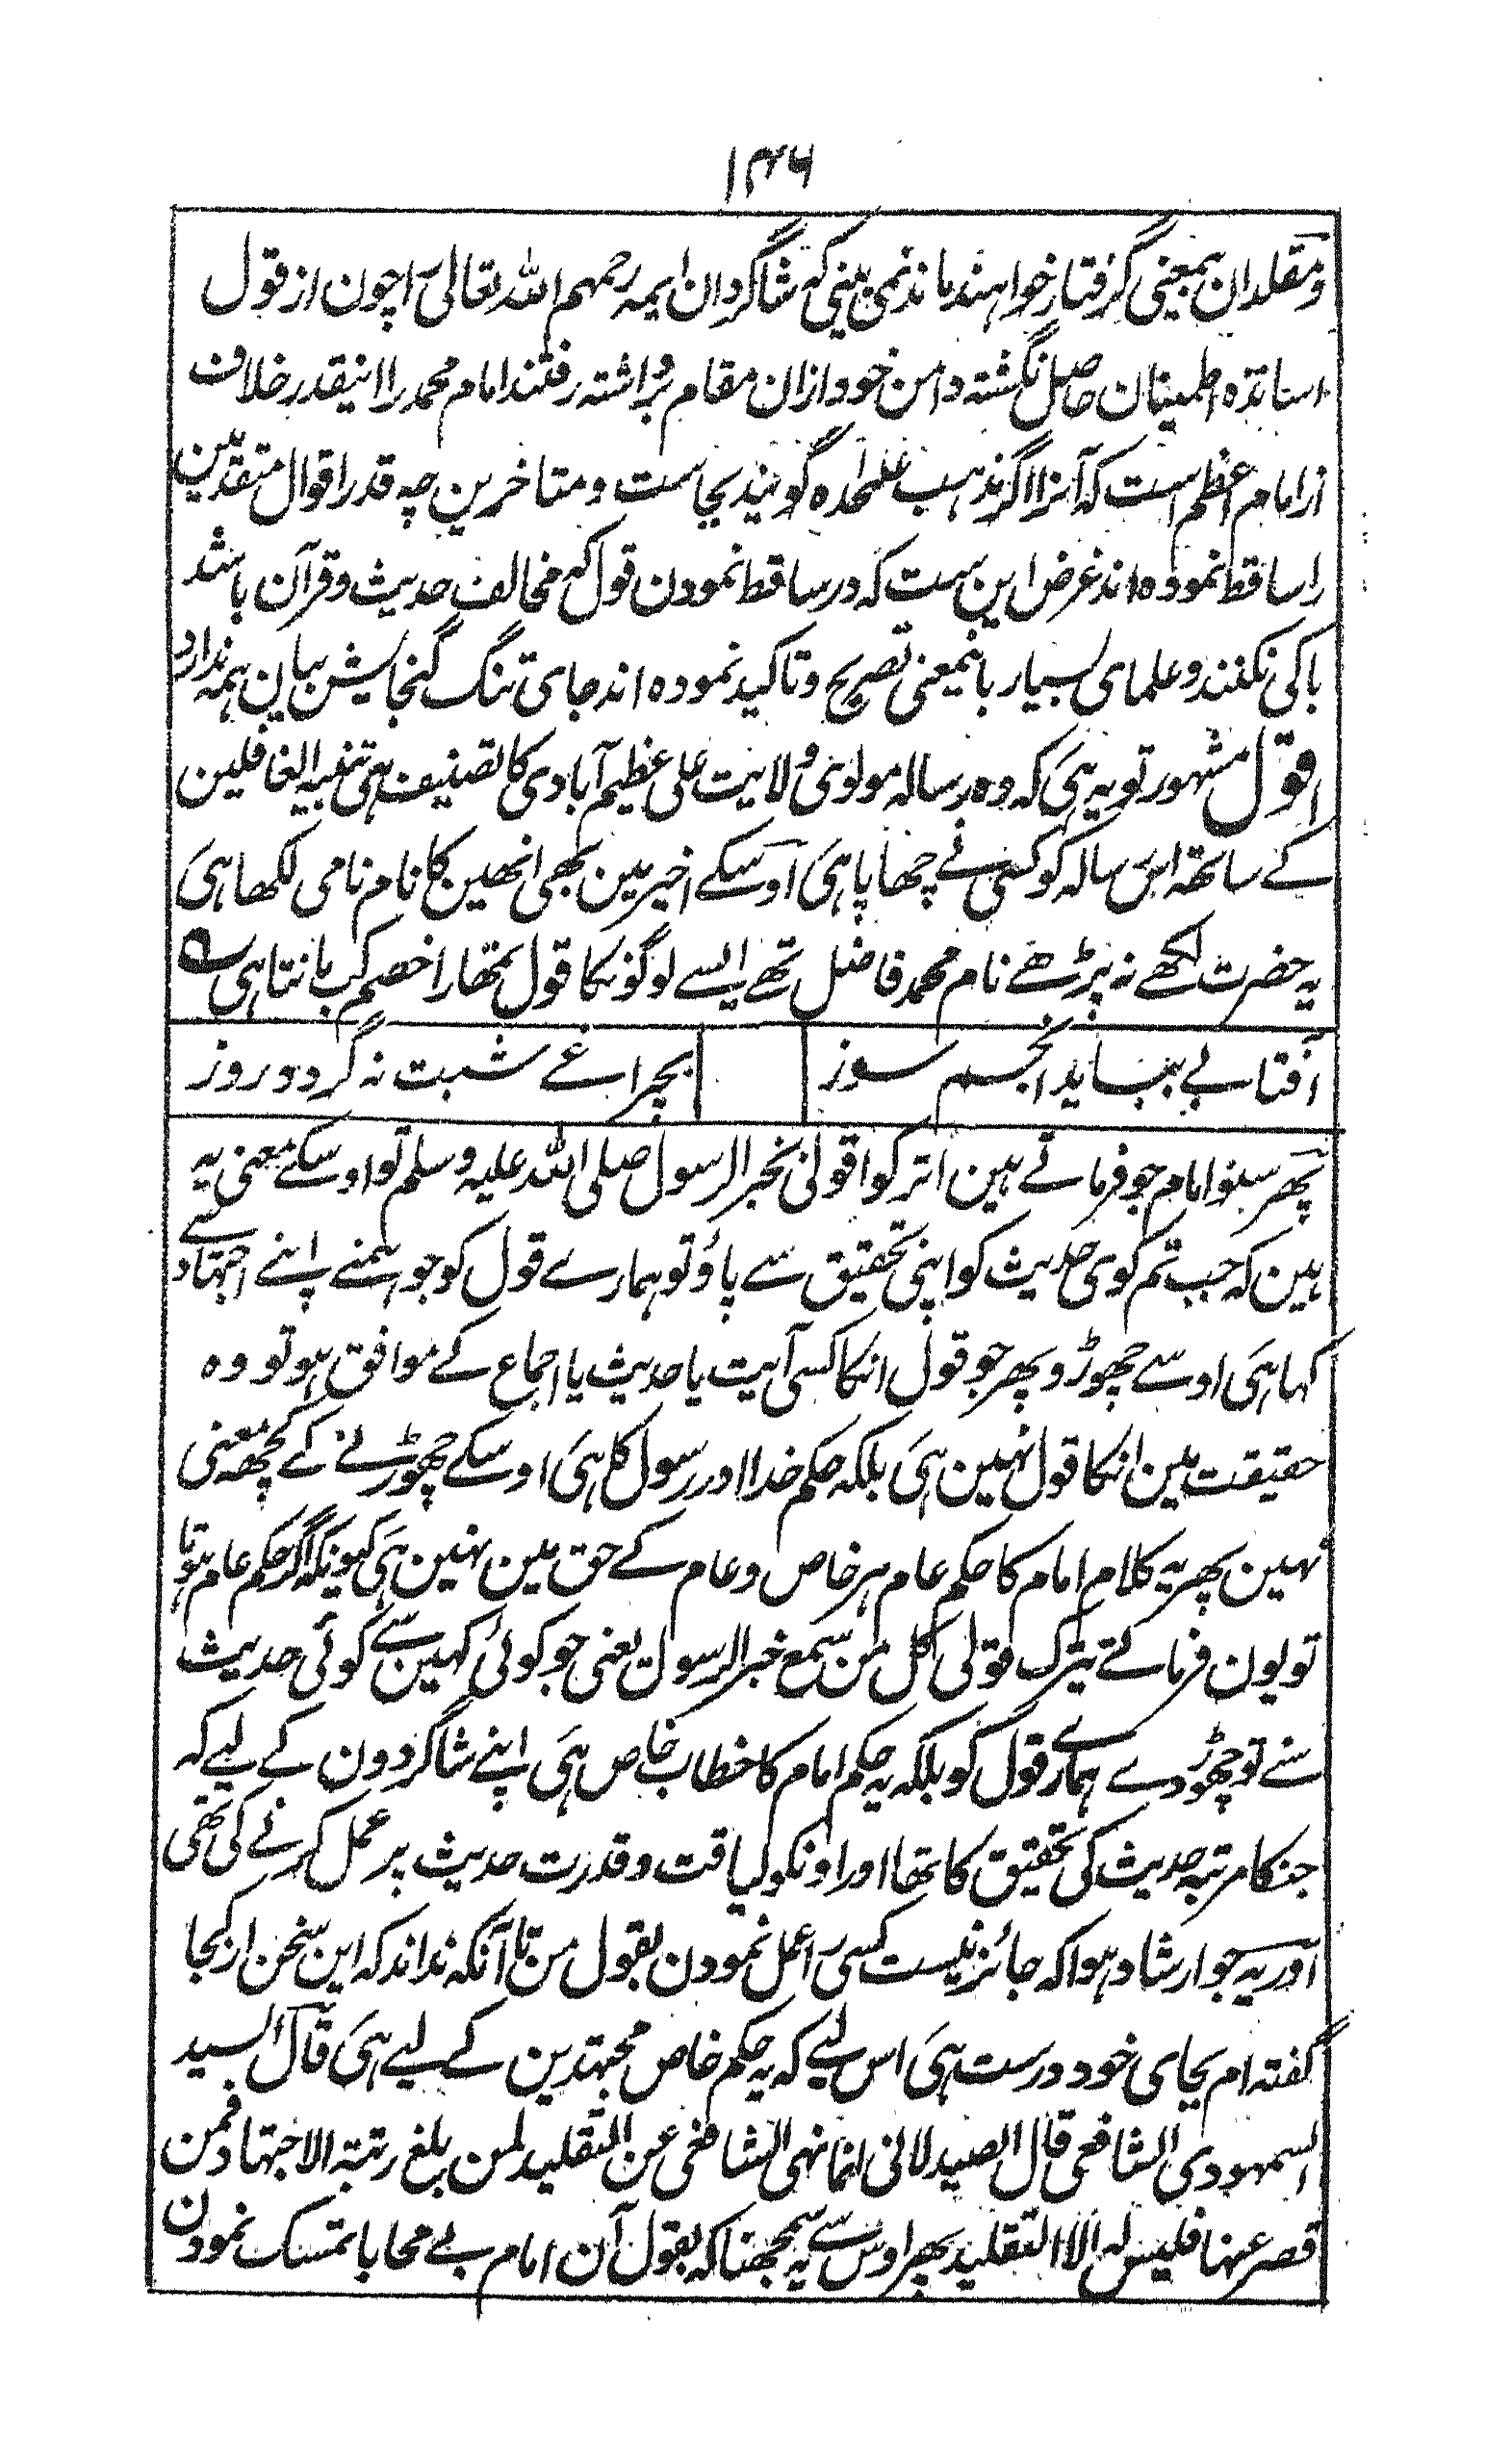 ۱۴۶
ومقلدان بمعنی گرفتار خواہند ماند نمی بینی کہ شاگردان ایمہ رحمہم اللہ تعالیٰ را چون از قول
اساتذہ اطمینان حاصل نگشتہ دامن خود ازان مقام برداشتہ رفتند امام محمد را اینقدر خلاف
از امام اعظم است کہ آنرا اگر مذہب علیحدہ گویند بجاست و متاخرین چہ قدر اقوال متقدمین
را ساقط نمودہ اند غرض این ست کہ در ساقط نمودن قول کہ مخالف حدیث و قرآن باشد
باکی نکنند و علمای بسیار باینمعنی تصریح و تاکید نمودہ اند جای تنگ گنجایش بیان ہمہ ندارد
اقول مشہور تو یہ ہی کہ وہ رسالہ مولوی ولایت علی عظیم آبادی کا تصنیف ہی تنبیہ الغافلین
کے ساتھہ اس رسالہ کو کسی نے چھاپا ہی اوسکے اخیر مین بھی انھین کا نام نامی لکھا ہی
یہ حضرت لکھے نہ پڑھے نام محمد فاضل تھے ایسے لوگونکا قول تمھارا خصم کب مانتا ہی ؎
آفتابے بباید انجم سوز
بچراغے شبت نہ گردد روز
پھر سنو امام جو فرماتے ہین اترکوا قولی بخبر الرسول صلی اللہ علیہ وسلم تو اوسکے معنی یہ
ہین کہ جب تم کوی حدیث کو اپنی تحقیق سے پاؤ تو ہمارے قول کو جو ہمنے اپنے اجتہاد سے
کہا ہی اوسے چھوڑو پھر جو قول انکا کسی آیت یا حدیث یا اجماع کے موافق ہو تو وہ
حقیقت مین انکا قول نہین ہی بلکہ حکم خدا اور رسول کا ہی اوسکے چھوڑنے کے کچھہ معنی
نہین پھر یہ کلام امام کا حکم عام ہر خاص و عام کے حق مین نہین ہی کیونکہ اگر حکم عام ہوتا
تو یون فرماتے یترک قولی کل من سمع خبر الرسول یعنی جو کوئی کہین سے کوئی حدیث
سنے تو چھوڑ دے ہمارے قول کو بلکہ یہ حکم امام کا خطاب خاص ہی اپنے شاگردون کے لیے کہ
جنکا مرتبہ حدیث کی تحقیق کا تھا اور اونکو لیاقت و قدرت حدیث پر عمل کرنے کی تھی
اور یہ جو ارشاد ہوا کہ جائز نیست کسی را عمل نمودن بقول من تا آنکہ نداند کہ این سخن از کجا
گفتہ ام بجای خود درست ہی اس لیے کہ یہ حکم خاص مجتہدین کے لیے ہی قال السید
السمہودی الشافعی قال الصیدلانی انما نہی الشافعی عن التقلید لمن بلغ رتبۃ الاجتہاد فمن
قصر عنہا فلیس لہ الا التقلید پھر اوس سے یہ سمجھنا کہ بقول آن امام بے محابا تمسک نمودن